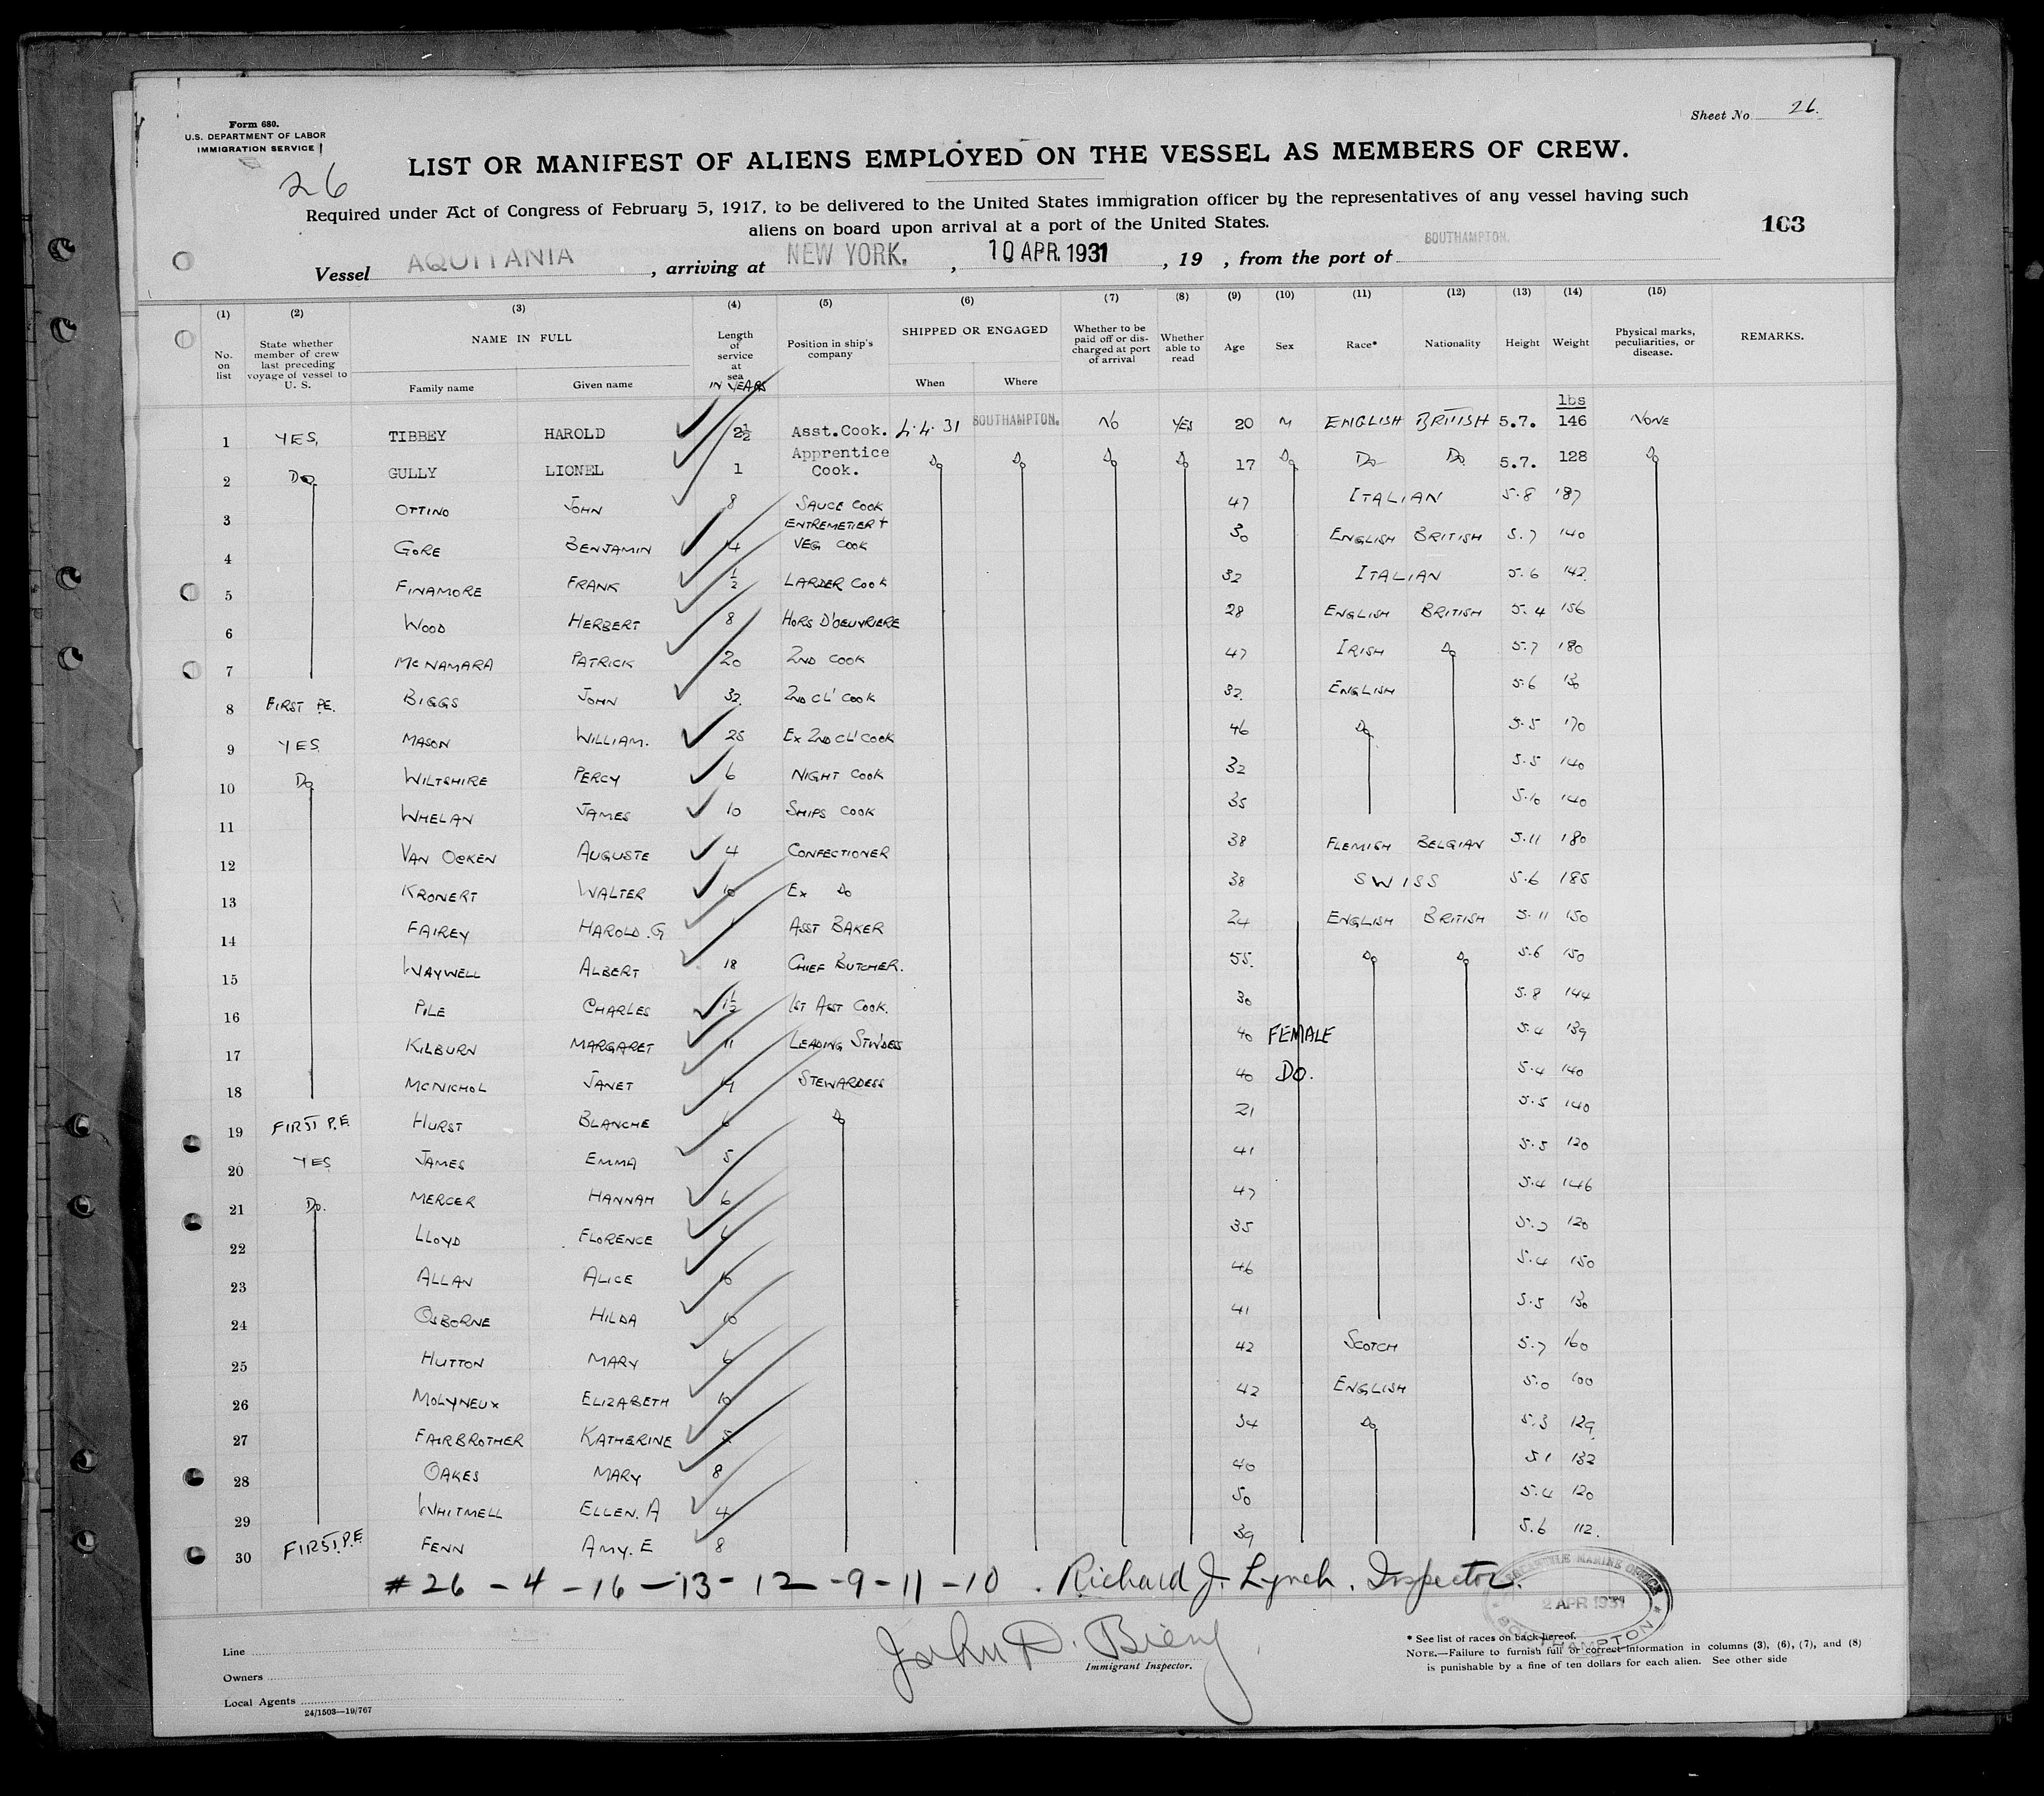 Form 680.
U.S. DEPARTMENT OF LABOR
IMMIGRATION SERVICE
26
Sheet No. 26.
LIST OR MANIFEST OF ALIENS EMPLOYED ON THE VESSEL AS MEMBERS OF CREW.
Required under Act of Congress of February 5, 1917, to be delivered to the United States immigration officer by the representatives of any vessel having such
aliens on board upon arrival at a port of the United States.
163
Vessel AQUITANIA, arriving at NEW YORK., 10 APR. 1931, 19 , from the port of SOUTHAMPTON.
(1) (2) (3) (4) (5) (6) (7) (8) (9) (10) (11) (12) (13) (14) (15)
No. on list State whether member of crew last preceding voyage of vessel to U. S. NAME IN FULL Family name Given name Length of service at sea IN YEARS Position in ship's company SHIPPED OR ENGAGED When Where Whether to be paid off or discharged at port of arrival Whether able to read Age Sex Race* Nationality Height Weight Physical marks, peculiarities, or disease. REMARKS.
lbs
1 YES, TIBBEY HAROLD 2½ Asst.Cook. 4.4.31 SOUTHAMPTON. No YES 20 M ENGLISH BRITISH 5.7. 146 NONE
2 Do GULLY LIONEL 1 Apprentice Cook. Do Do Do Do 17 Do Do Do 5.7. 128 Do
3 OTTINO JOHN 8 SAUCE COOK 47 ITALIAN 5.8 187
4 GORE BENJAMIN 4 ENTREMETIER + VEG COOK 30 ENGLISH BRITISH 5.7 140
5 FINAMORE FRANK ½ LARDER COOK 32 ITALIAN 5.6 142
6 WOOD HERBERT 8 HORS D'OEUVRIERE 28 ENGLISH BRITISH 5.4 156
7 MCNAMARA PATRICK 20 2ND COOK 47 IRISH Do 5.7 180
8 FIRST P.E. BIGGS JOHN 32. 2ND CL' COOK 32. ENGLISH 5.6 130
9 YES MASON WILLIAM. 25 EX 2ND CL' COOK 46 Do 5.5 170
10 Do WILTSHIRE PERCY 6 NIGHT COOK 32 5.5 140
11 WHELAN JAMES 10 SHIPS COOK 35 5.10 140
12 VAN OEKEN AUGUSTE 4 CONFECTIONER 38 FLEMISH BELGIAN 5.11 180
13 KRONERT WALTER 10 EX Do 38 SWISS 5.6 185
14 FAIREY HAROLD.G 1 ASST BAKER 24 ENGLISH BRITISH 5.11 150
15 WAYWELL ALBERT 18 CHIEF BUTCHER. 55. Do Do 5.6 150
16 PILE CHARLES 1½ 1ST ASST COOK. 30 5.8 144
17 KILBURN MARGARET 11 LEADING STW'DESS 40 FEMALE 5.4 139
18 MCNICHOL JANET STEWARDESS 40 DO. 5.4 140
19 FIRST P.E HURST BLANCHE 6 Do 21 5.5 140
20 YES JAMES EMMA 5 41 5.5 120
21 Do. MERCER HANNAH 6 47 5.4 146
22 LLOYD FLORENCE 35 120
23 ALLAN ALICE 10 46 5.4 150
24 OSBORNE HILDA 10 41 5.5 130
25 HUTTON MARY 6 42 SCOTCH 5.7 160
26 MOLYNEUX ELIZABETH 10 42 ENGLISH 5.0 100
27 FAIRBROTHER KATHERINE 34 Do 5.3 129
28 OAKES MARY 8 40 5.1 132
29 WHITMELL ELLEN.A 4 50 5.4 120
30 FIRST.P.E FENN AMY.E 8 39 5.6 112.
# 26 - 4 - 16 - 13 - 12 - 9 - 11 - 10 . Richard J. Lynch. Inspector.
MERCANTILE MARINE OFFICE
2 APR 1931
SOUTHAMPTON
Line
Owners
Local Agents
24/1503—19/767
John D.
Immigrant Inspector.
* See list of races on back hereof.
NOTE.—Failure to furnish full or correct information in columns (3), (6), (7), and (8)
is punishable by a fine of ten dollars for each alien. See other side